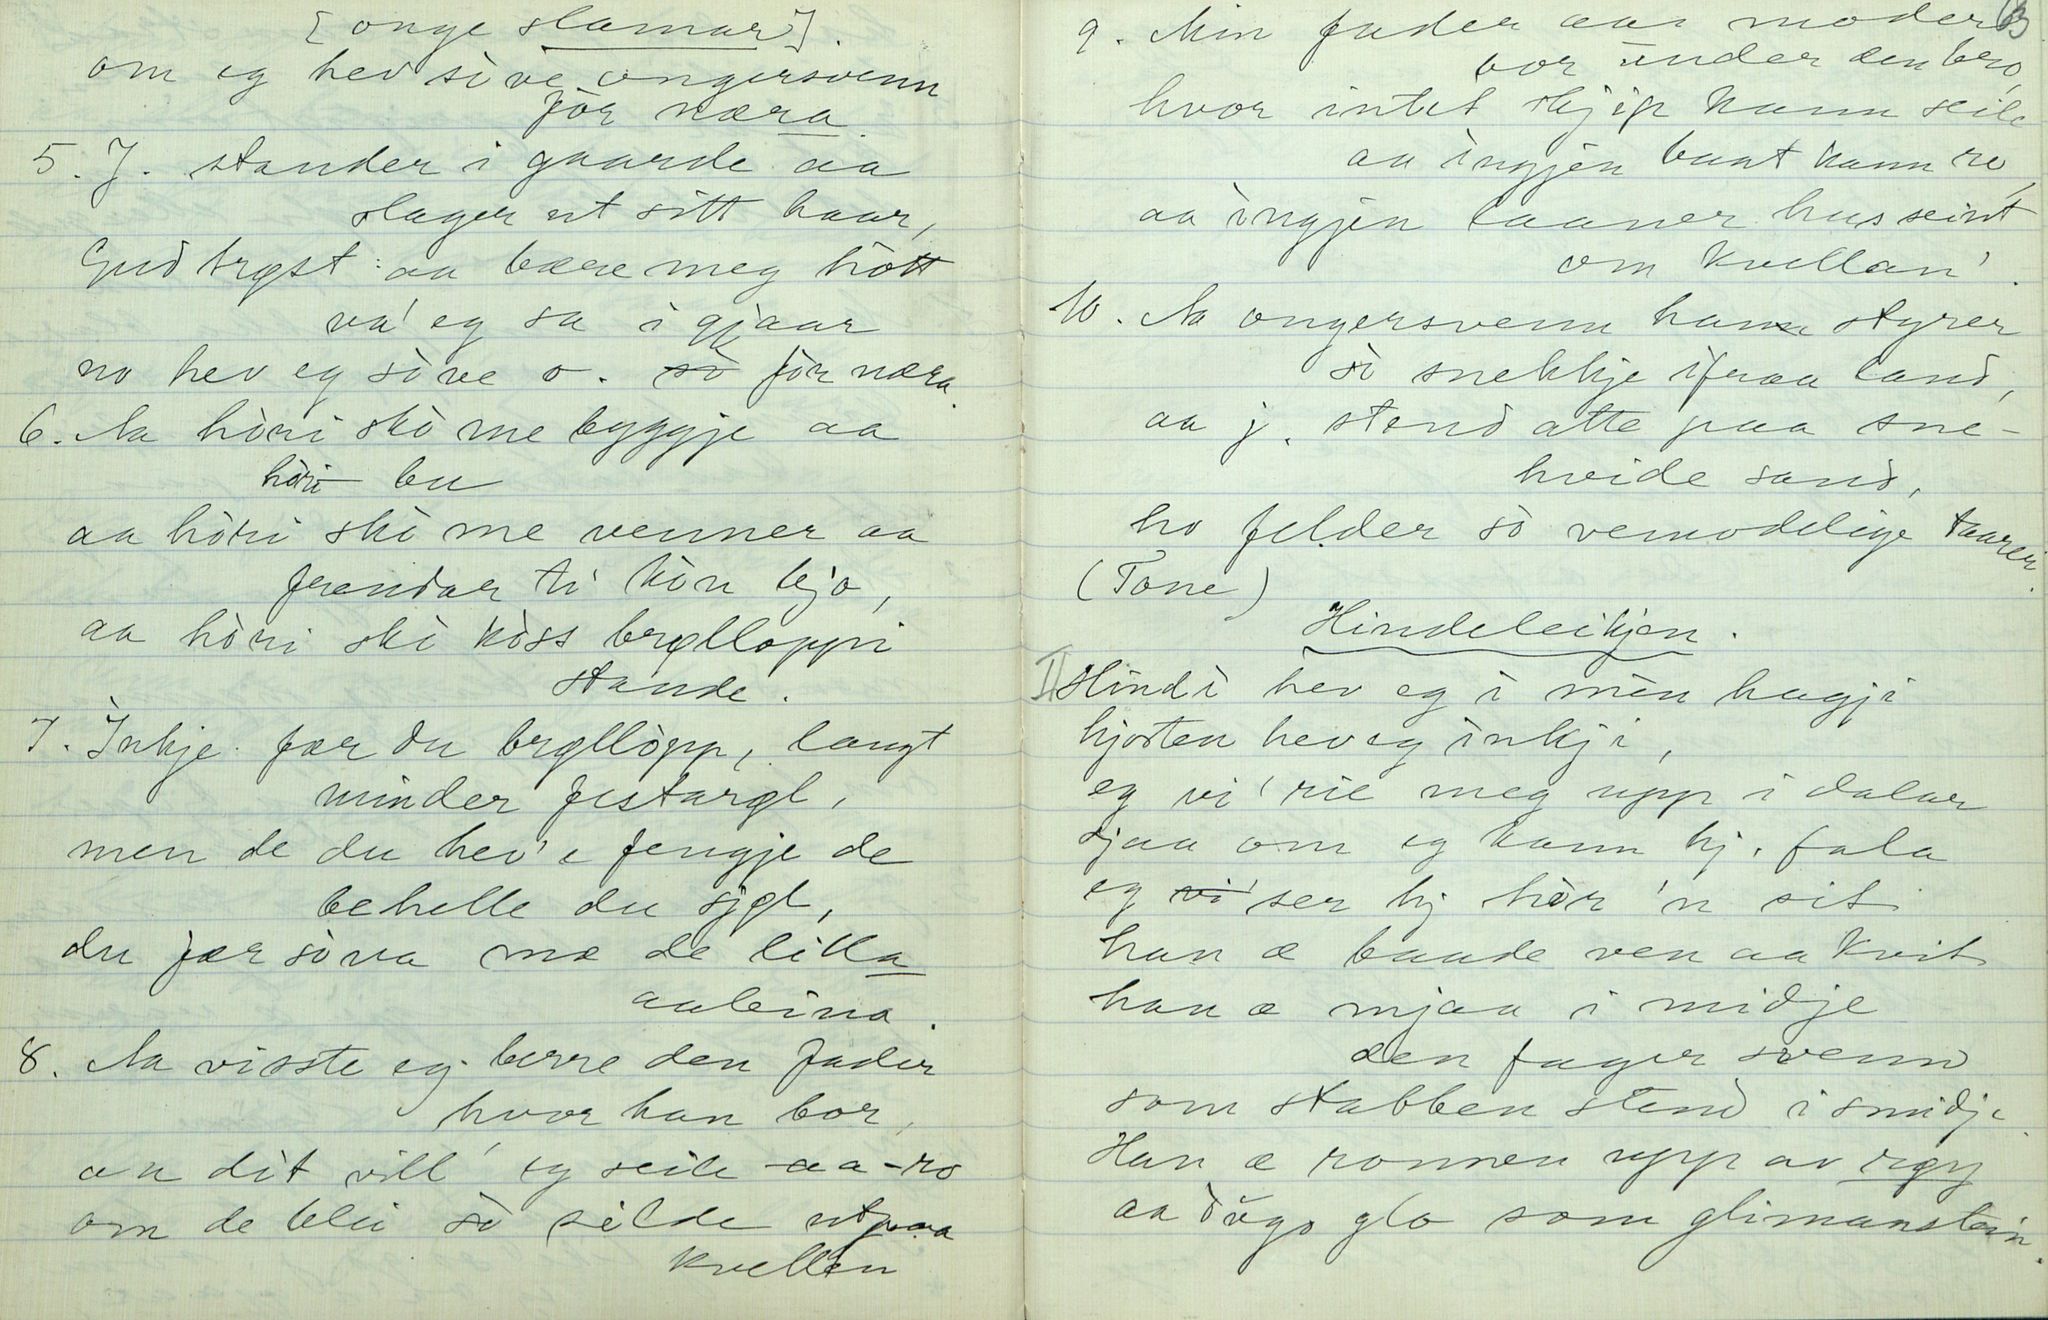 [onge slamar].
om eg hev sòve ongersvenn
fòr næra.
5. J. stander i gaarde aa
slager ut sitt haar,
Gud trøst: aa bære meg hòtt
va' eg sa i gjaar
no hev eg sòve o. sò fòr næra.
6. Aa hòri skò me byggje aa
hòri bu
aa hòri skò me venner aa
frendar ti kòn bjo,
aa hòri skò kòss brøllòppi
stande.
7. Inkje fær du brøllòpp, langt
minder festarøl,
men de du hev'e fengje de
behelle du sjøl,
du fær sòva mæ de lilla
aaleina.
8. Aa visste eg berre den fader
hvor han bor,
aa dit vill' eg seile aa ro
om de blei sò silde utpaa
kvellen
9. Min fader aa moder
bor under den bro,
hvor intet skjip kann seile
aa ingjen baat kann ro,
aa ingjen laaner hus seint
om kvellan'.
10. Aa ongersvenn hann styrer
si snekkje ifraa land,
aa j. stend atte paa sne-
hvide sand,
ho felder sò vemodelige taarer.
(Tone)
Hindeleikjen.
II Hindi hev eg i min hagji
hjorten hev eg inkji,
eg vi' rie meg upp i dalar
sjaa om eg kann hj. fala
eg vi' ser hj hòr 'n sit
han æ baade ven aa kvit
han æ mjaa i midje
den fager svenn
som stabben stend i smidje.
Han æ ronnen upp av røy
aa òugo glo som glimanstein.